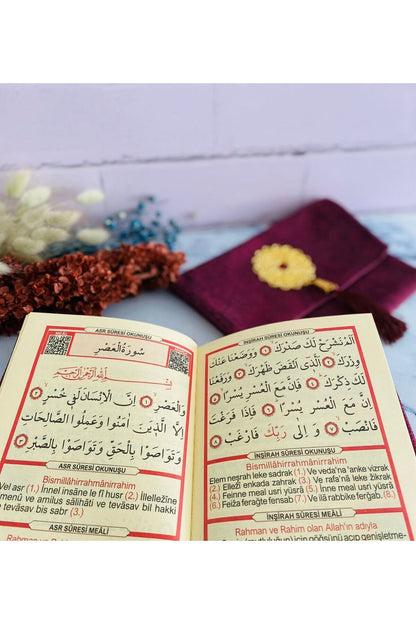 ASR SÛRESİ OKUNUŞU
سُورَةُ الْعَصْرِ
بِسْمِ اللّٰهِ الرَّحْمٰنِ الرَّحِيمِ
وَالْعَصْرِ ﴿١﴾ اِنَّ الْاِنْسَانَ لَفِي خُسْرٍ ﴿٢﴾
اِلَّا الَّذِينَ اٰمَنُوا وَعَمِلُوا الصَّالِحَاتِ
وَتَوَاصَوْا بِالْحَقِّ وَتَوَاصَوْا بِالصَّبْرِ ﴿٣﴾
ASR SÛRESİ OKUNUŞU
Bismillâhirrahmânirrahim
Vel asr (1.) İnnel insâne le fî husr (2.) İllellezîne
menû ve amilus sâlihâti ve tevâsav bil hakki
ve tevâsav bis sabr (3.)
ASR SÛRESİ MEÂLİ
İNŞİRAH SÛRESİ OKUNUŞU
اَلَمْ نَشْرَحْ لَكَ صَدْرَكَ ﴿١﴾ وَوَضَعْنَا عَنْكَ
وِزْرَكَ ﴿٢﴾ اَلَّذِي اَنْقَضَ ظَهْرَكَ ﴿٣﴾ وَرَفَعْنَا
لَكَ ذِكْرَكَ ﴿٤﴾ فَاِنَّ مَعَ الْعُسْرِ يُسْرًا ﴿٥﴾
اِنَّ مَعَ الْعُسْرِ يُسْرًا ﴿٦﴾ فَاِذَا فَرَغْتَ
فَانْصَبْ ﴿٧﴾ وَاِلٰى رَبِّكَ فَارْغَبْ ﴿٨﴾
İNŞİRAH SÛRESİ OKUNUŞU
Bismillâhirrahmânirrahim
Elem neşrah leke sadrak (1.) Ve veda'na anke vizrak
(2.) Ellezî enkada zahrak (3.) Ve rafa'nâ leke zikrak
(4.) Feinne meal usri yüsrâ (5.) İnne meal usri yüsrâ
(6.) Feiza ferağte fensab (7.) Ve ilâ rabbike ferğab.(8.)
İNŞİRAH SÛRESİ MEÂLİ
Rahman ve Rahim olan Allah'ın adıyla